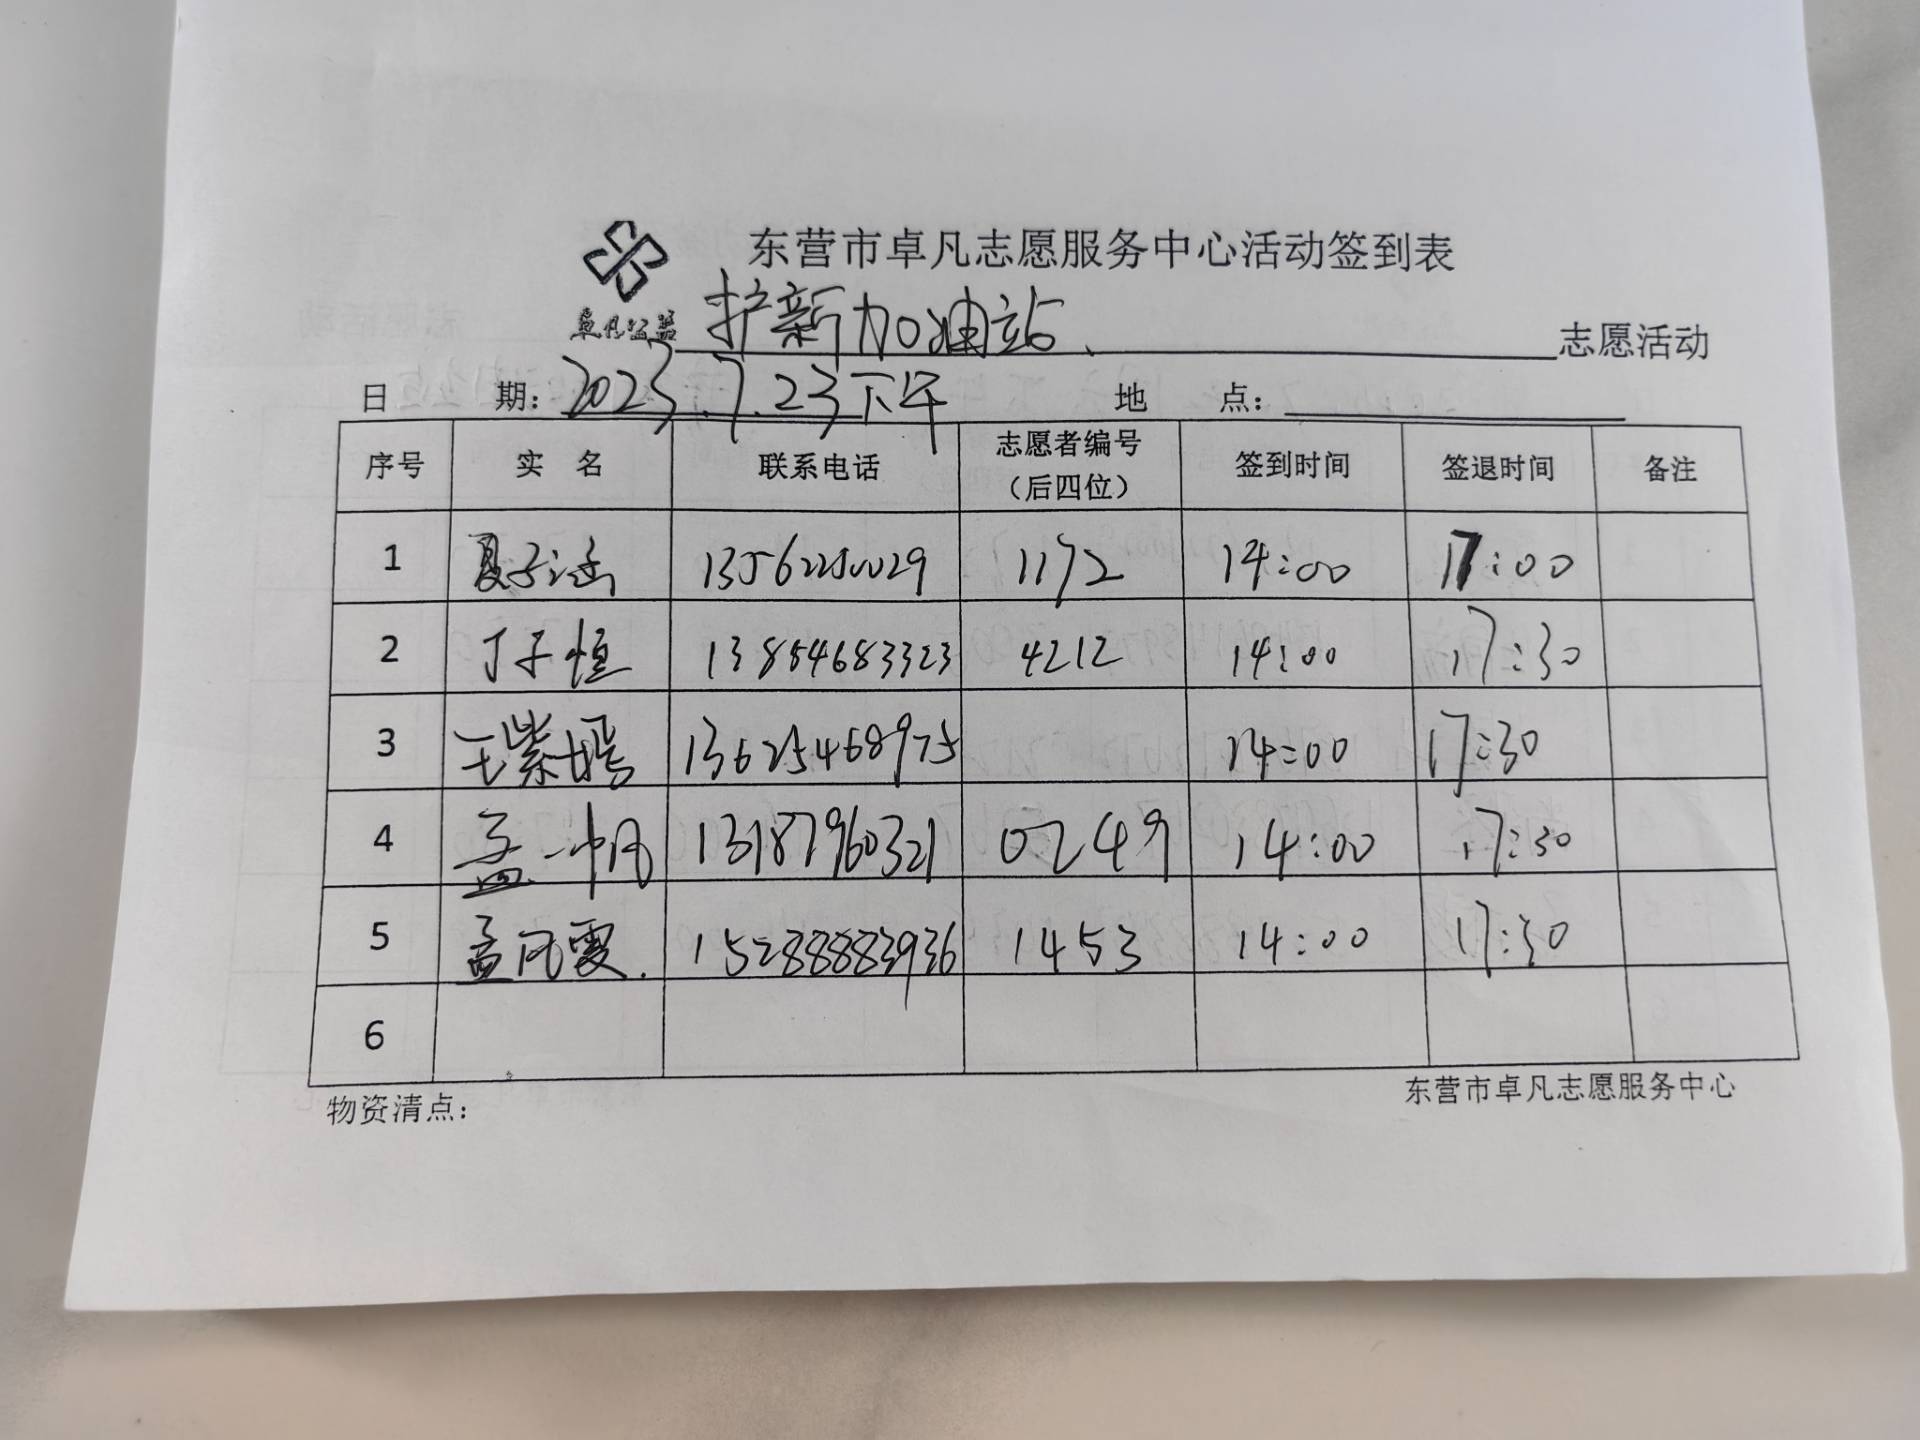 东营市卓凡志愿服务中心活动签到表
卓凡公益 护新加油站 志愿活动
日 期: 2023.7.23下午 地 点:
序号 实 名 联系电话 志愿者编号（后四位） 签到时间 签退时间 备注
1 夏子涵 13562250029 1172 14:00 17:00
2 丁子恒 13854683323 4212 14:00 17:30
3 王紫嫣 13625468975 14:00 17:30
4 孟一帆 13187960321 0249 14:00 17:30
5 孟凡雯. 15288883936 1453 14:00 17:30
6
物资清点: 东营市卓凡志愿服务中心